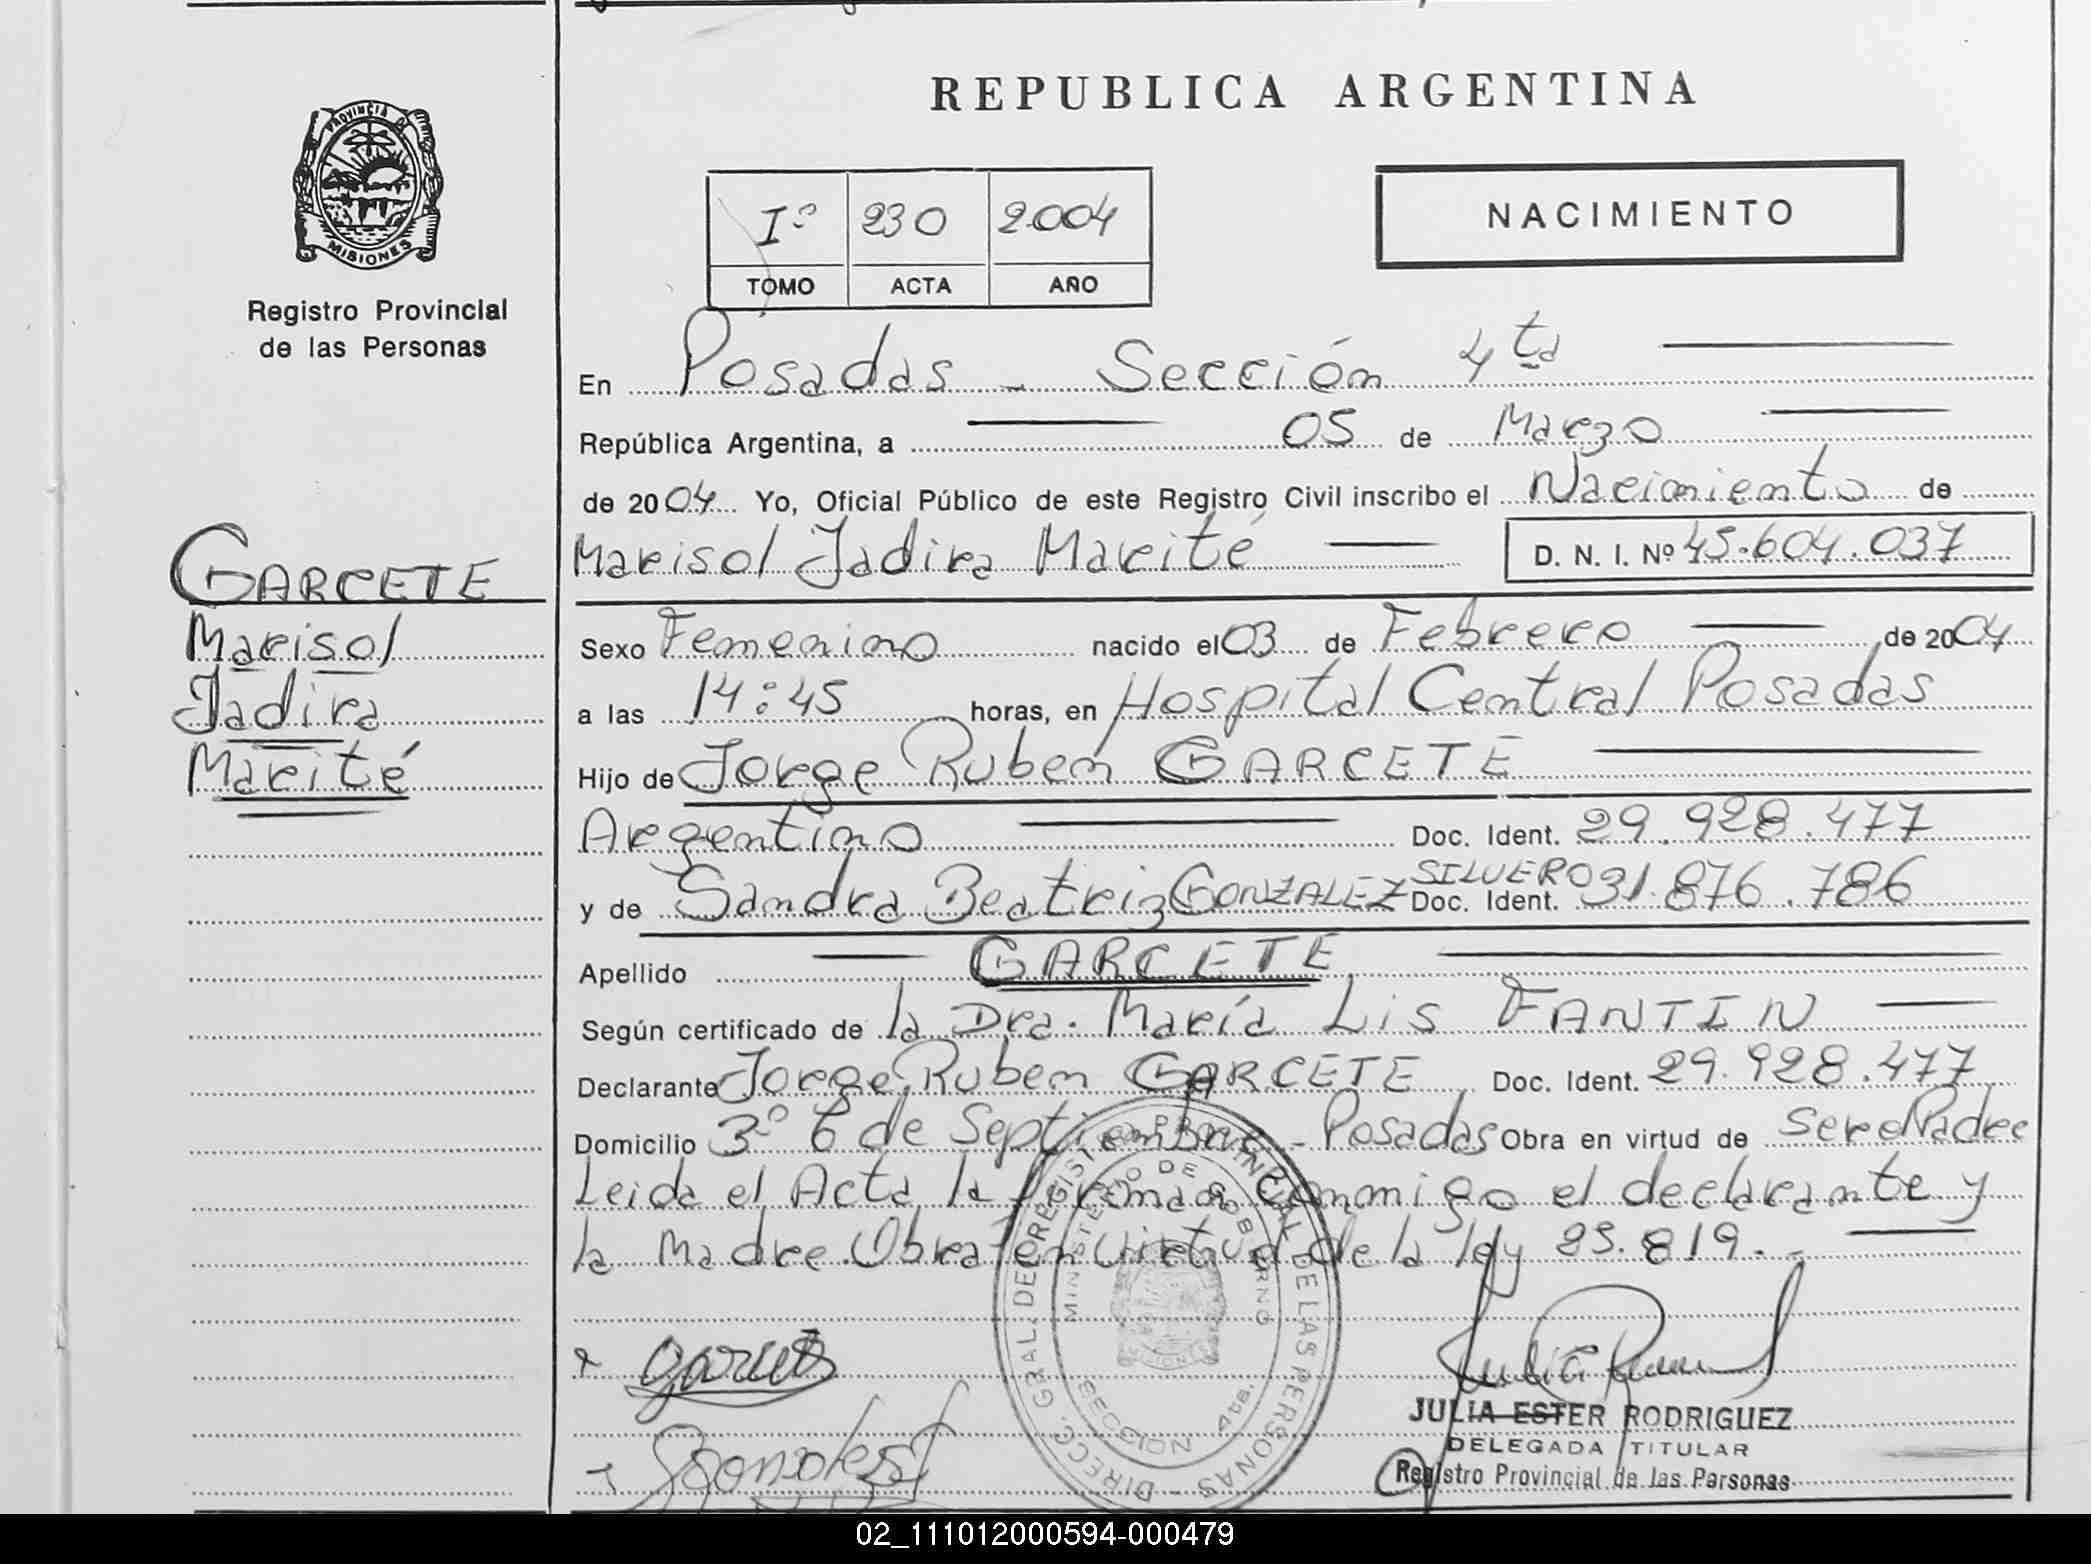 REPUBLICA ARGENTINA
PROVINCIA DE
MISIONES
Registro Provincial
de las Personas
Iº 230 2.004
TOMO ACTA AÑO
NACIMIENTO
En Posadas - Sección 4ta
República Argentina, a 05 de Marzo
de 2004 Yo, Oficial Público de este Registro Civil inscribo el Nacimiento de
Marisol Jadira Marité D. N. I. Nº 45.604.037
GARCETE
Marisol
Jadira
Marité
Sexo Femenino nacido el 03 de Febrero de 2004
a las 14:45 horas, en Hospital Central Posadas
Hijo de Jorge Ruben GARCETE
Argentino Doc. Ident. 29.928.477
y de Sandra Beatriz GONZALEZ SILVERO Doc. Ident. 31.876.786
Apellido GARCETE
Según certificado de la Dra. María Lis FANTIN
Declarante Jorge Ruben GARCETE Doc. Ident. 29.928.477
Domicilio 3º 6 de Septiembre - Posadas Obra en virtud de Ser el Padre
Leida el Acta la firman conmigo el declarante y
la Madre. Obra en virtud de la ley 25.819.-
DIRECC. GRAL. DEL REGISTRO PROVINCIAL DE LAS PERSONAS
MINISTERIO DE GOBIERNO
SECCION 4ta.
JULIA ESTER RODRIGUEZ
DELEGADA TITULAR
Registro Provincial de las Personas
02_111012000594-000479